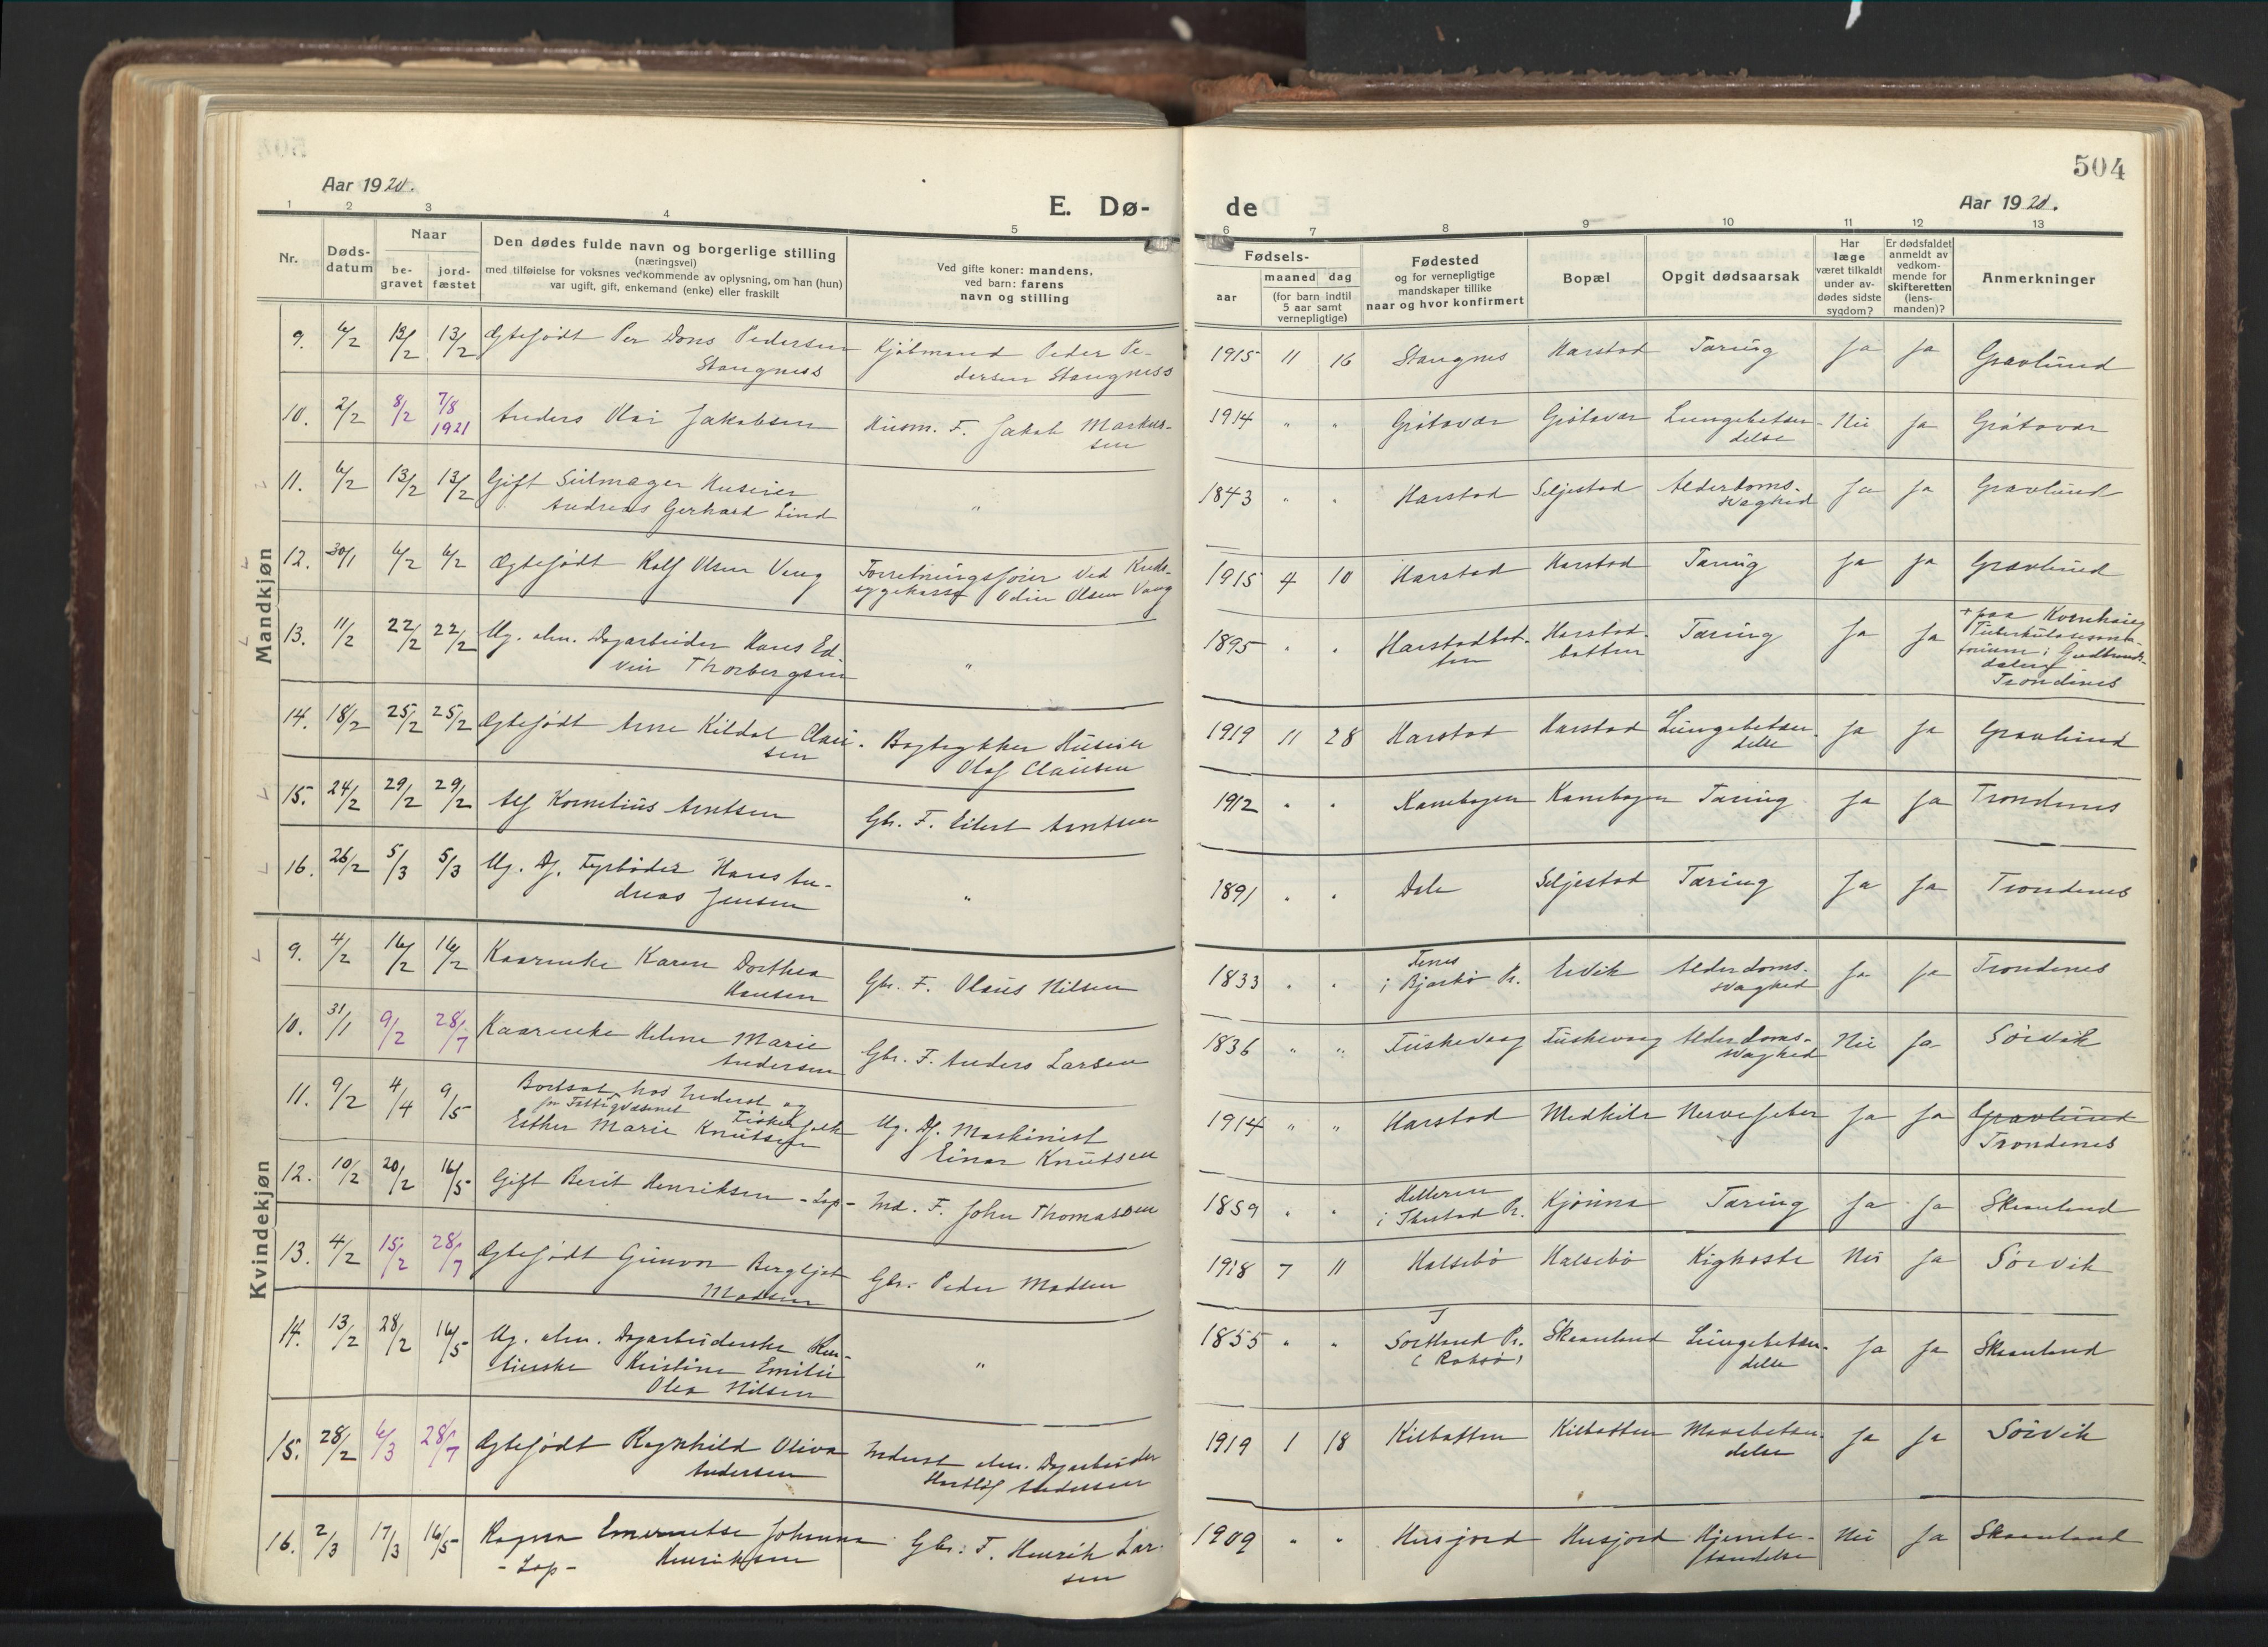 504
Aar 1920.
E. Dø-
de
Aar 1920.
1 2 3 4 5 6 7 8 9 10 11 12 13
Nr.
Døds-
datum
Naar
be-
gravet
jord-
fæstet
Den dødes fulde navn og borgerlige stilling
(næringsvei)
med tilføielse for voksnes vedkommende av oplysning, om han (hun)
var ugift, gift, enkemand (enke) eller fraskilt
Ved gifte koner: mandens,
ved barn: farens
navn og stilling
Fødsels-
aar
maaned dag
(for barn indtil
5 aar samt
vernepligtige)
Fødested
og for vernepligtige
mandskaper tillike
naar og hvor konfirmert
Bopæl
Opgit dødsaarsak
Har
læge
været tilkaldt
under av-
dødes sidste
sygdom?
Er dødsfaldet
anmeldt av
vedkom-
mende for
skifteretten
(lens-
manden)?
Anmerkninger
Mandkjøn
9. 6/2 13/2 13/2 Ægtefødt Per Dons Pedersen
Stangness
Kjøbmand Peder Pe-
dersen Stangness
1915 11 16 Stangnes Harstad Tæring Ja Ja Gravlund
10. 2/2 8/2 7/8
1921
Anders Olai Jakobsen
Husm. F. Jakob Markus-
sen
1914 " " Grøtavær Grøtavær Lungebetæn-
delse
Nei Ja Grøtavær
11. 6/2 13/2 13/2 Gift Seilmager Huseier
Andreas Gerhard Lind
"
1843 " " Harstad Seljestad Alderdoms-
svaghed
Ja Ja Gravlund
12. 30/1 6/2 6/2 Ægtefødt Rolf Olsen Vang
Forretningsfører ved Kreds-
sygekasse Odin Olsen Vang
1915 4 10 Harstad Harstad Tæring Ja Ja Gravlund
13. 11/2 22/2 22/2 Ug. alm. Dagarbeider Hans Ed-
vin Thorbergsen
"
1895 " " Harstadbot-
ten
Harstad-
botten
Tæring Ja Ja
+ paa Kornhaug
Tuberkulosesana-
torium i Gudbrands-
dalen
Trondenes
14. 18/2 25/2 25/2 Ægtefødt Arne Kildal Clau-
sen
Bogtrykker Huseier
Olaf Clausen
1919 11 28 Harstad Harstad Lungebetæn-
delse
Ja Ja Gravlund
15. 24/2 29/2 29/2 Alf Kornelius Arntsen
Gbr. F. Eilert Arntsen
1912 " " Kanebogen Kanebogen Tæring Ja Ja Trondenes
16. 26/2 5/3 5/3 Ug. Df. Fyrbøder Hans An-
dreas Jensen
"
1891 " " Dale Seljestad Tæring Ja Ja Trondenes
Kvindekjøn
9. 4/2 16/2 16/2 Kaarenke Karen Dorthea
Hansen
Gbr. F. Olaus Nilsen
1833 " "
Fenes
i Bjarkø Pr.
Ervik Alderdoms-
svaghed
Ja Ja Trondenes
10. 31/1 9/2 28/7 Kaarenke Helene Marie
Andersen
Gbr. F. Anders Larsen
1836 " " Fuskevaag Fuskevaag Alderdoms-
svaghed
Nei Ja Sørvik
11. 9/2 4/4 9/5 Bortsat hos Inderst og
for Fattigvæsenet Fiskerfolk
Esther Marie Knutsen
Ug. Df. Maskinist
Einar Knutsen
1914 " " Harstad Medkila Nervefeber Ja Ja Gravlund
Trondenes
12. 10/2 20/2 16/5 Gift Berit Henriksen - Lap -
Ind. F. John Thomassen
1859 " "
i Pr.
Kjønna Tæring Ja Ja Skaanland
13. 4/2 15/2 28/7 Ægtefødt Gunvor Bergljot
Madsen
Gbr. Peder Madsen
1918 7 11 Halsebø Halsebø Kighoste Nei Ja Sørvik
14. 13/2 28/2 16/5 Ug. alm. Dagarbeiderske Ren-
tierske Kristine Emilie
Olea Nilsen
"
1855 " " Sortland Pr.
Skaanland Lungebetæn-
delse
Ja Ja Skaanland
15. 28/2 6/3 28/7 Ægtefødt Ragnhild Oliva
Andersen
Inderst alm. Dagarbeider
Andersen
1919 1 18 Kilbotten Kilbotten Mavebetæn-
delse
Ja Ja Sørvik
16. 2/3 17/3 16/5 Ragna Johanna
- Lap - Henriksen
Gbr. F. Henrik Lar-
sen
1909 " " Husjord Husjord Hjernebe-
tændelse
Nei Ja Skaanland